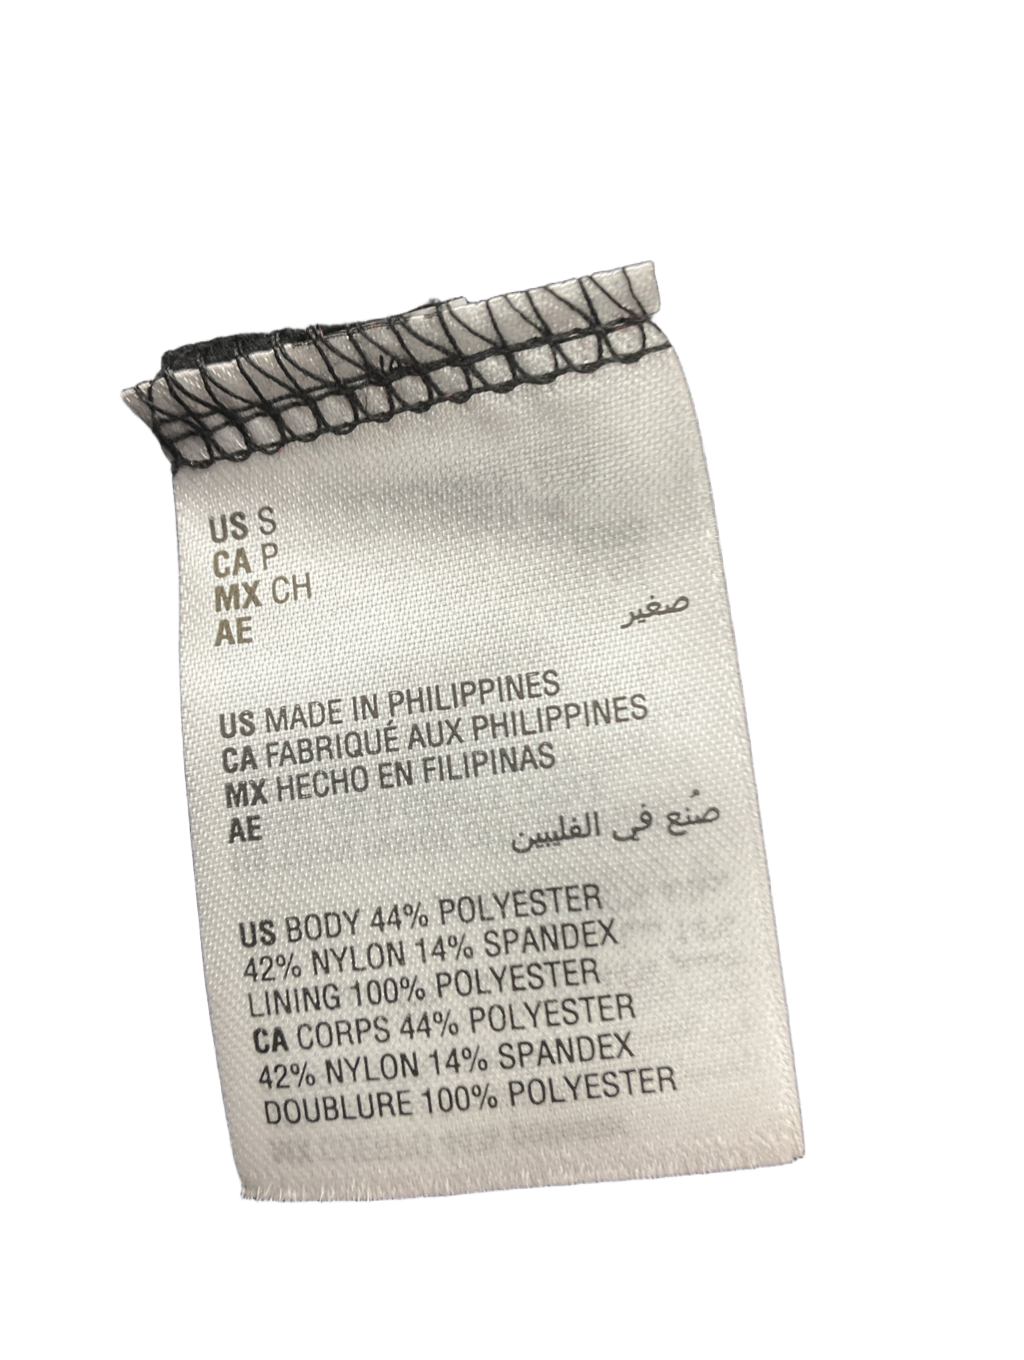 US S
CA P
MX CH
AE صغير
US MADE IN PHILIPPINES
CA FABRIQUÉ AUX PHILIPPINES
MX HECHO EN FILIPINAS
AE صُنع في الفليبين
US BODY 44% POLYESTER
42% NYLON 14% SPANDEX
LINING 100% POLYESTER
CA CORPS 44% POLYESTER
42% NYLON 14% SPANDEX
DOUBLURE 100% POLYESTER